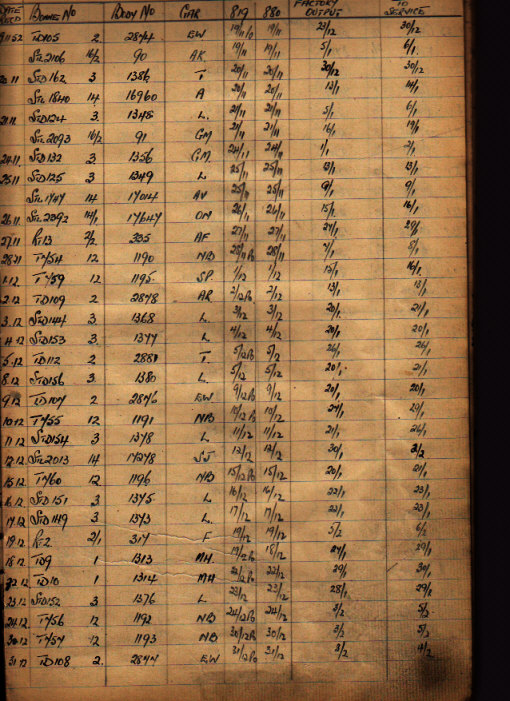 DATE RECD BONNET No BODY No GAR 819 880 FACTORY OUTPUT TO SERVICE
19.11.52 TD105 2 2844 EW 19/11 Po 19/11 23/12 30/12
STL2106 16/2 90 AK 19/11 19/11 5/1 6/1
20.11 STD162 3 1386 T 20/11 20/11 30/12 30/12
STL1840 14 16960 A 20/11 20/11 13/1 14/1
21.11 STD124 3 1348 L. 21/11 21/11 5/1 6/1
STL2093 16/2 91 GM 21/11 21/11 16/1 19/1
24.11 STD132 3 1356 GM. 24/11 24/11 1/1 2/1
25.11 STD125 3 1349 L 25/11 25/11 13/1 13/1
STL1747 14 17014 AV 25/11 25/11 9/1 9/1
26.11 STL2392 14/1 17647 ON 26/11 26/11 15/1 16/1
27.11 RT13 2/2 335 AF 27/11 27/11 27/1 29/1
28.11 TY54 12 1190 NB 28/11 Po 28/11 4/1 5/1
1.12 TY59 12 1195 SP 1/12 1/12 15/1 16/1
2.12 TD109 2 2848 AR 2/12 Po 2/12 13/1 13/1
3.12 STD144 3 1368 L. 3/12 3/12 20/1 21/1
4.12 STD153 3 1377 L 4/12 4/12 20/1 20/1
5.12 TD112 2 2881 T 5/12 Po 5/12 26/1 26/1
8.12 STD156 3 1380 L. 5/12 5/12 20/1 21/1
9.12 TD107 2 2846 EW 9/12 Po 9/12 20/1 20/1
10.12 TY55 12 1191 NB 10/12 Po 10/12 27/1 29/1
11.12 STD154 3 1378 L 11/12 11/12 21/1 26/1
12.12 STL2013 14 17278 SJ 12/12 12/12 30/1 3/2
15.12 TY60 12 1196 NB 15/12 Po 15/12 20/1 21/1
16.12 STD151 3 1375 L 16/12 16/12 22/1 23/1
17.12 STD149 3 1373 L. 17/12 17/12 22/1 23/1
19.12 RT2 2/1 317 F 19/12 19/12 5/2 6/2
18.12 TD9 1 1313 MH. 19/12 Po 18/12 27/1 29/1
22.12 TD10 1 1314 MH 22/12 Po 22/12 29/1 30/1
23.12 STD152 3 1376 L 23/12 23/12 28/1 29/2
24.12 TY56 12 1192 NB 24/12 Po 24/12 3/2 5/2
30.12 TY57 12 1193 NB 30/12 Po 30/12 3/2 5/2
31.12 TD108 2. 2847 EW 31/12 Po 31/12 3/2 4/2